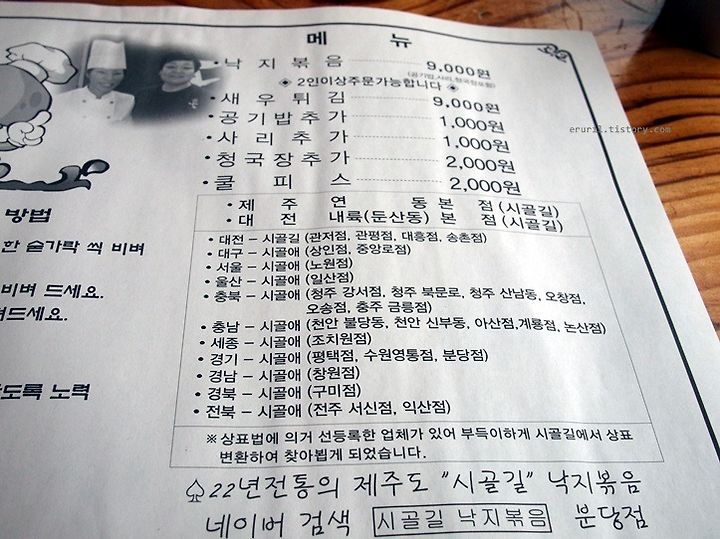 메 뉴
• 낙지볶음 9,000원
(공기밥,사리,청국장포함)
◈ 2인이상주문가능합니다 ◈
• 새우튀김 9,000원
• 공기밥추가 1,000원
• 사리추가 1,000원
• 청국장추가 2,000원
• 쿨피스 2,000원
eruril.tistory.com
• 제주 연동 본점 (시골길)
• 대전 내륙(둔산동) 본점 (시골길)
• 대전 – 시골길 (관저점, 관평점, 대흥점, 송촌점)
• 대구 – 시골애 (상인점, 중앙로점)
• 서울 – 시골애 (노원점)
• 울산 – 시골애 (일산점)
• 충북 – 시골애 (청주 강서점, 청주 북문로, 청주 산남동, 오창점,
오송점, 충주 금릉점)
• 충남 – 시골애 (천안 불당동, 천안 신부동, 아산점,계룡점, 논산점)
• 세종 – 시골애 (조치원점)
• 경기 – 시골애 (평택점, 수원영통점, 분당점)
• 경남 – 시골애 (창원점)
• 경북 – 시골애 (구미점)
• 전북 – 시골애 (전주 서신점, 익산점)
※ 상표법에 의거 선등록한 업체가 있어 부득이하게 시골길에서 상표
변환하여 찾아뵙게 되었습니다.
♤ 22년전통의 제주도 "시골길" 낙지볶음
네이버 검색 시골길 낙지볶음 분당점
방법
한 숟가락 씩 비벼
비벼 드세요.
드세요.
도록 노력